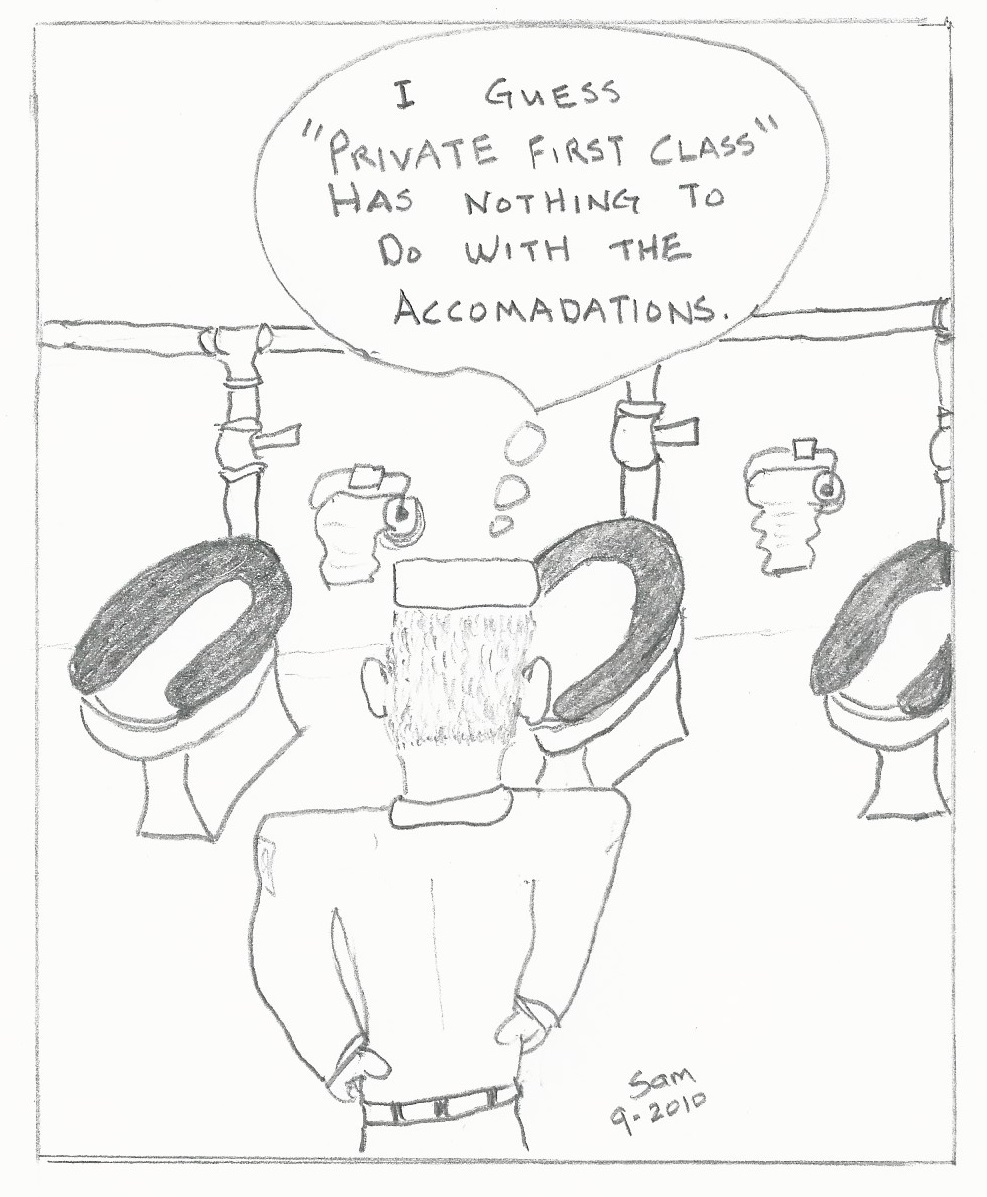 I GUESS
"PRIVATE FIRST CLASS"
HAS NOTHING TO
DO WITH THE
ACCOMADATIONS.
Sam
9-2010